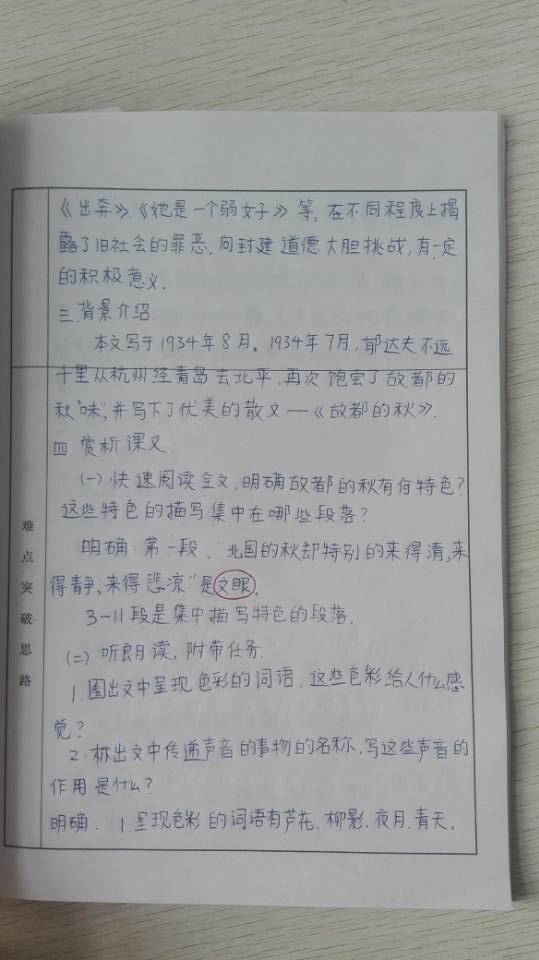 《出奔》.《她是一个弱女子》等，在不同程度上揭
露了旧社会的罪恶，向封建道德大胆挑战，有一定
的积极意义.
三.背景介绍.
本文写于1934年8月。1934年7月，郁达夫不远
千里从杭州经青岛去北平，再次饱尝了故都的
秋"味"，并写下了优美的散文——《故都的秋》.
四 赏析课文
(一)快速阅读全文，明确故都的秋有何特色?
这些特色的描写集中在哪些段落?
明确:第一段."北国的秋却特别的来得清，来
得静，来得悲凉"是文眼.
3-11段是集中描写特色的段落.
(二)听朗读，附带任务.
1.圈出文中呈现色彩的词语，这些色彩给人什么感
觉?
2.标出文中传递声音的事物的名称，写这些声音的
作用是什么?
明确. 1.呈现色彩的词语有芦花、柳影、夜月、青天、
难点突破思路